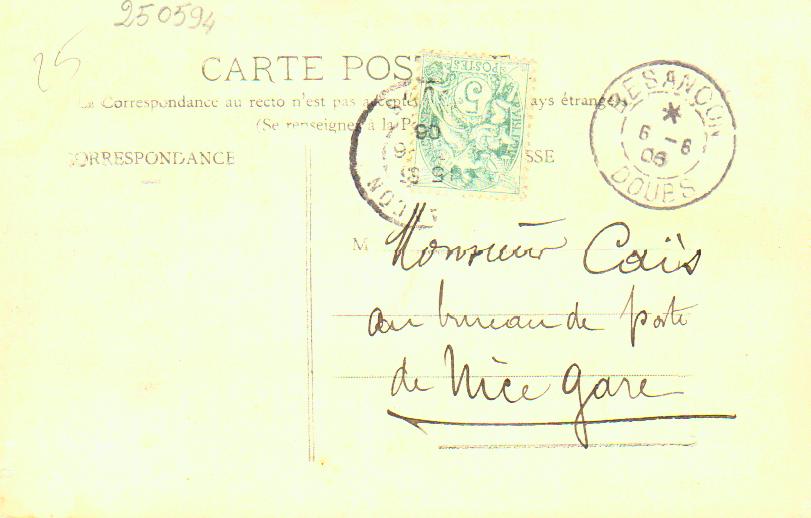 250594
25
CARTE POST
La Correspondance au recto n'est pas accepté ays étrangers
(Se renseigner à la P
CORRESPONDANCE
ESSE
POSTES
5
BESANÇON
6 - 6
06
DOUBS
M Monsieur Caïs
au bureau de poste
de Nice gare